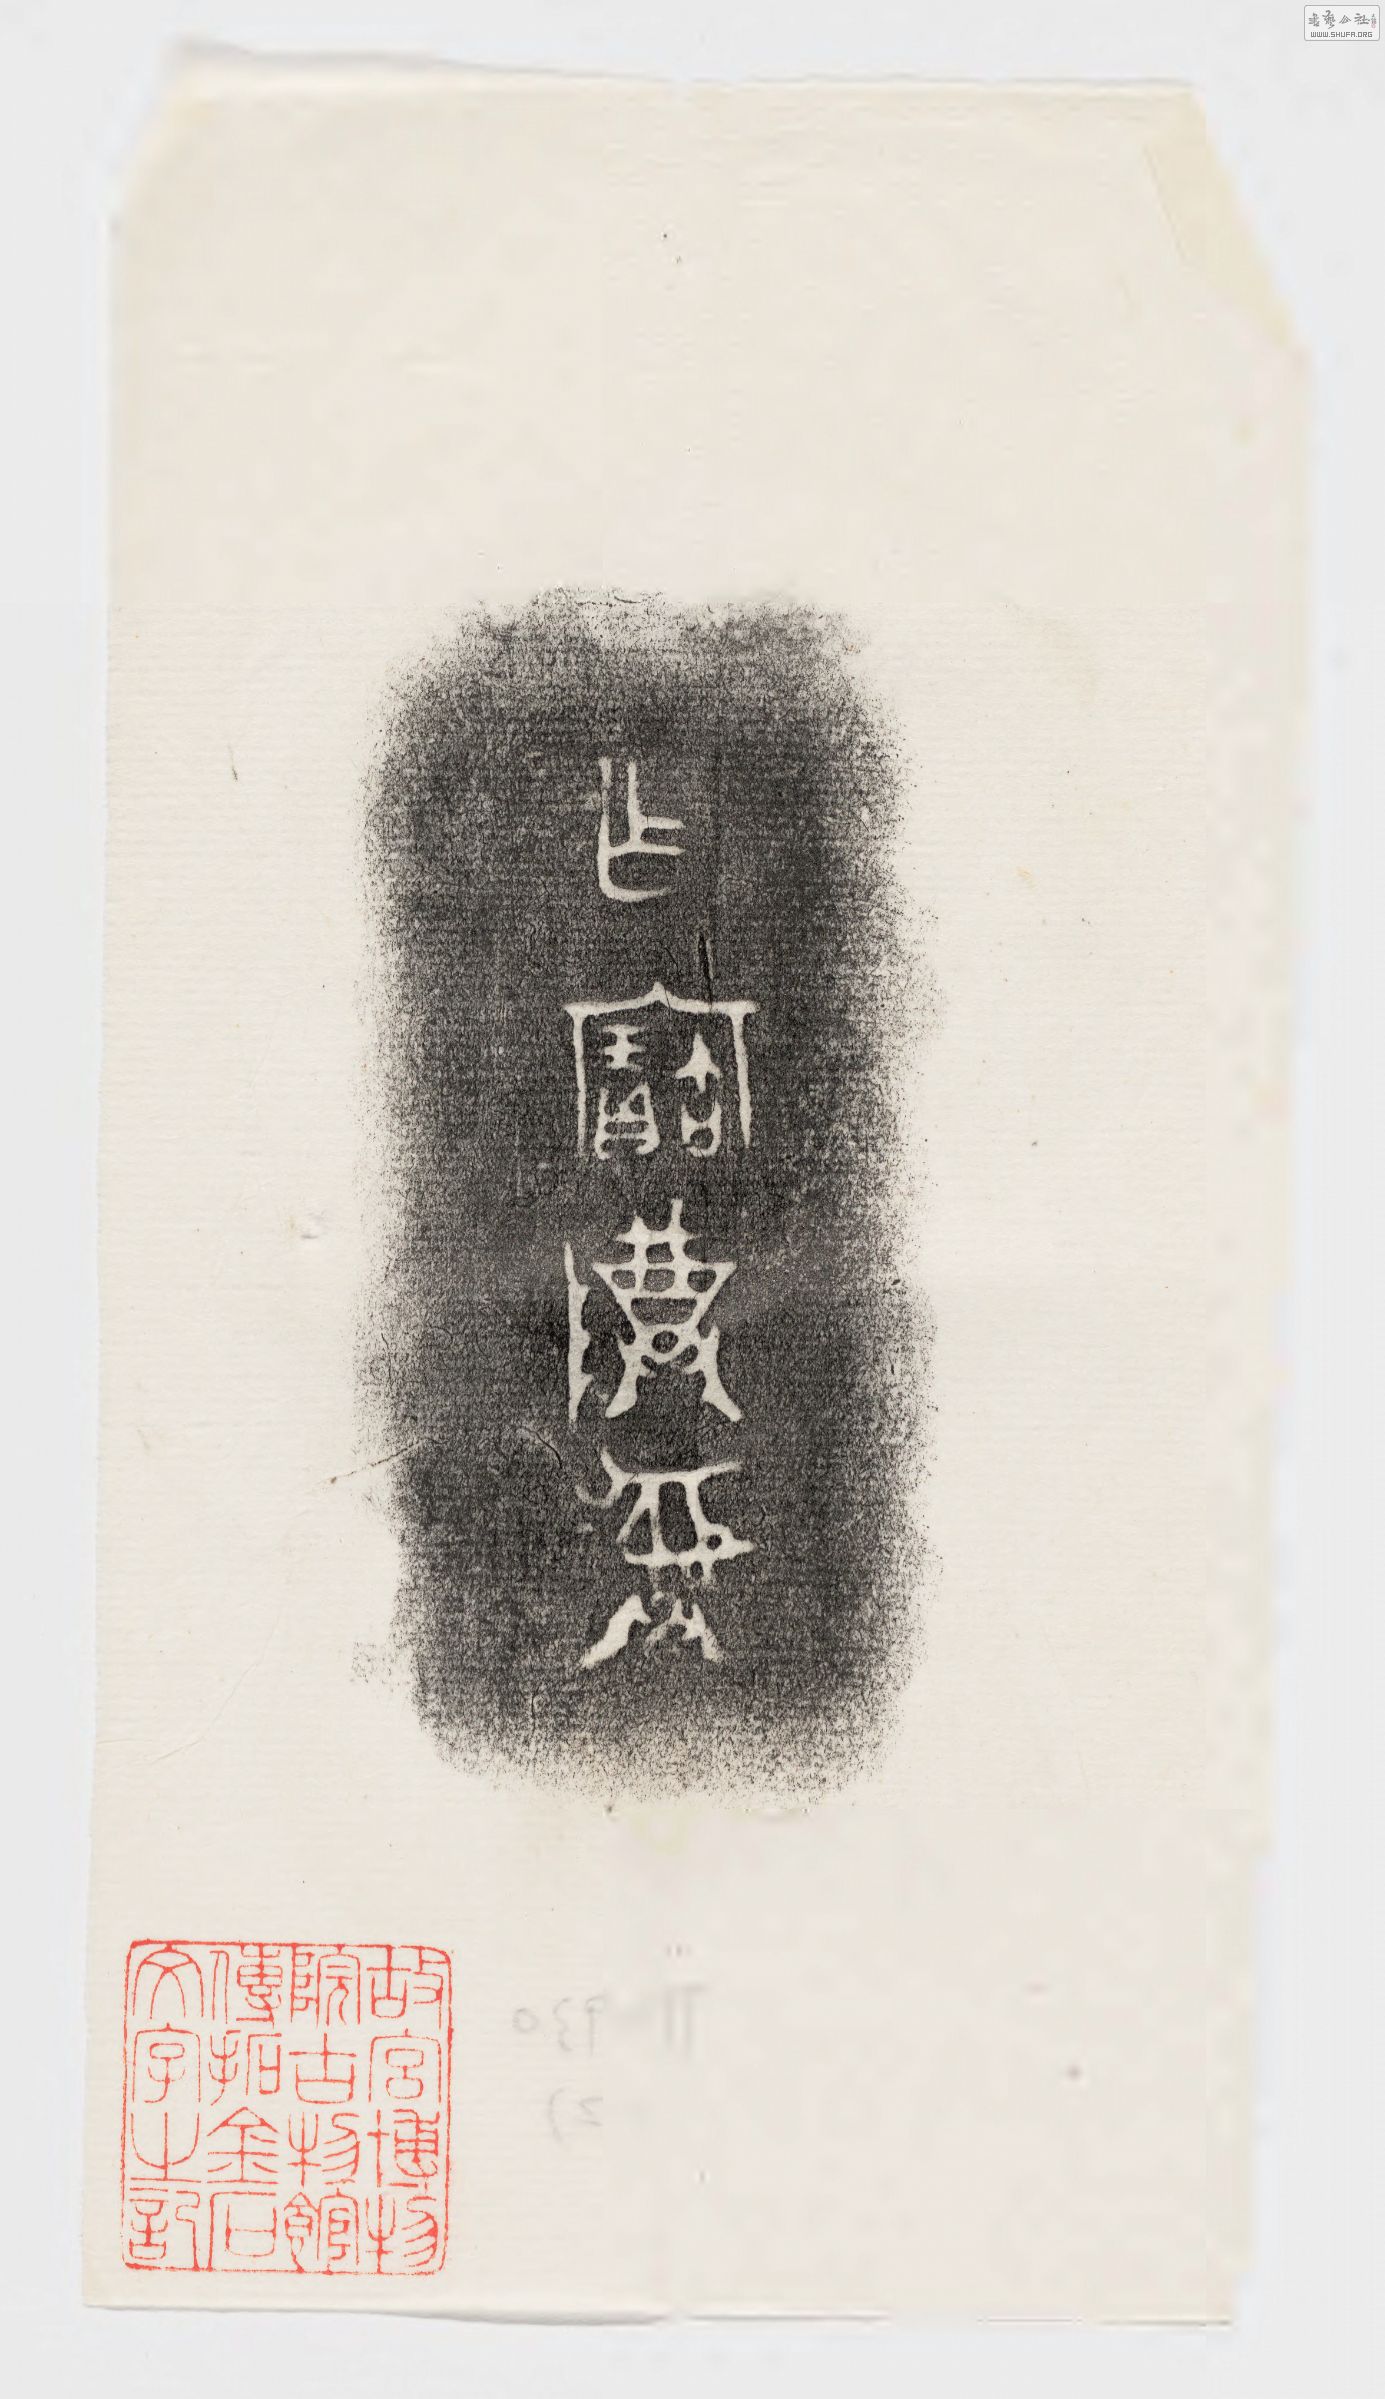 書藝公社
WWW.SHUFA.ORG
乍寶尊彝
故宮博物
院古物館
傳拓金石
文字之記